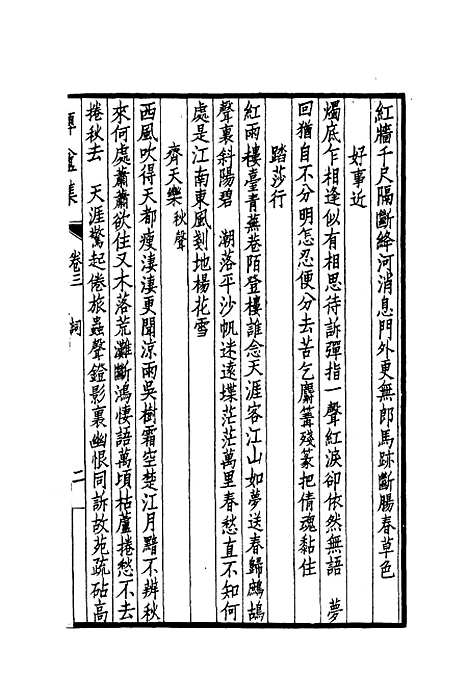 紅牆千尺隔斷絳河消息門外更無郎馬跡斷腸春草色
好事近
燭底乍相逢似有相思待訴彈指一聲紅淚卻依然無語　夢
回猶自不分明怎忍便分去苦乞麝篝殘篆把倩魂黏住
踏莎行
紅雨樓臺青蕪巷陌登樓誰念天涯客江山如夢送春歸鷓鴣
聲裏斜陽碧　潮落平沙帆迷遠堞茫茫萬里春愁直不知何
處是江南東風剗地楊花雪
齊天樂秋聲
西風吹得天都瘦淒淒更聞涼雨吳樹霜空楚江月黯不辨秋
來何處蕭蕭欲住又木落荒灘斷鴻悽語萬頃枯蘆捲愁不去
捲秋去　天涯驚起倦旅蟲聲鐙影裏幽恨同訴故苑疏砧高
卷三　詞　二